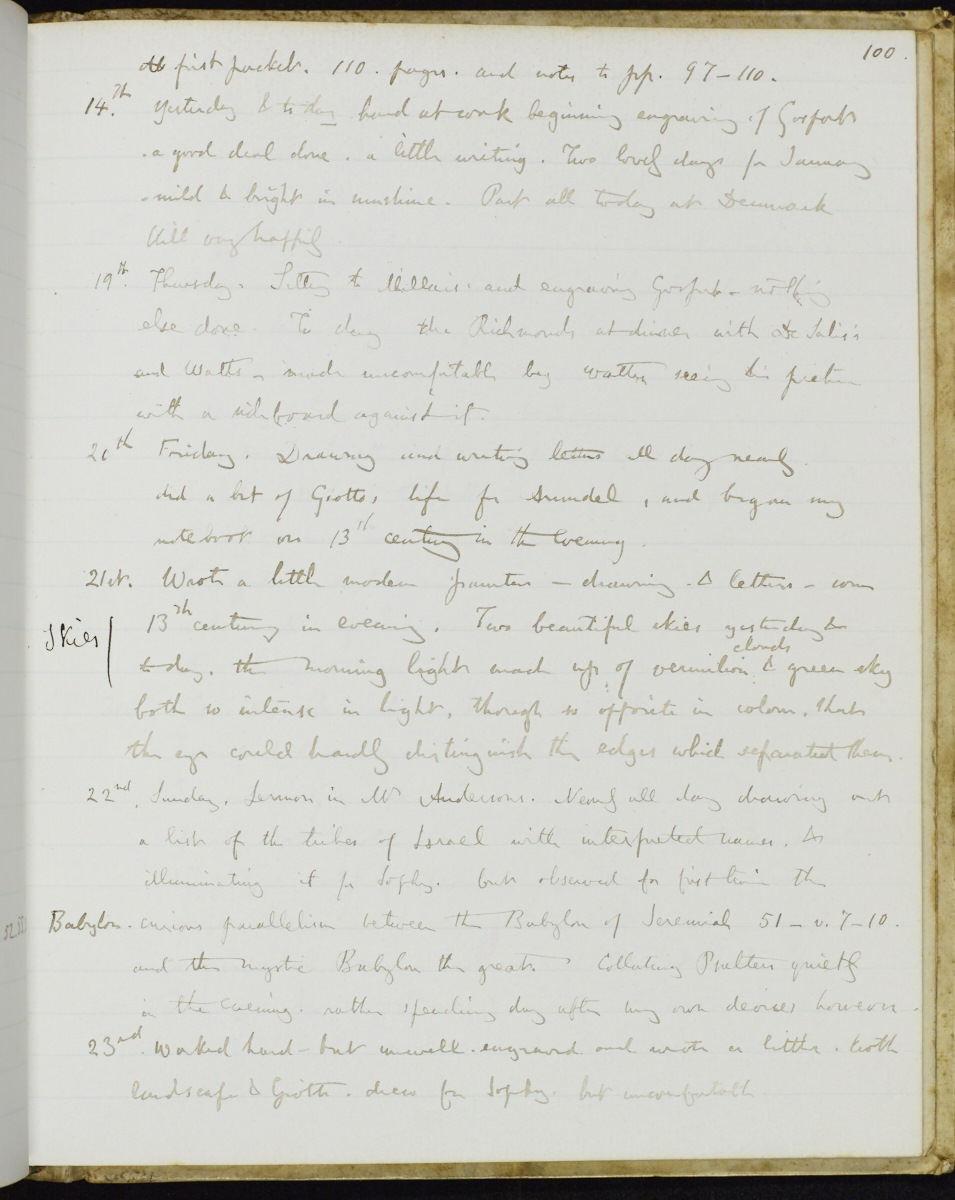 100.
first packet. 110. pages. and notes to pp. 97-110.
14.th Yesterday & to day hard at work beginning engraving of Gosforth
. a good deal done. a little writing. Two lovely days for January
- mild & bright in sunshine. Past all today at Denmark
Hill very happily
19th. Thursday. Sitting to Millais. and engraving Gosforth - nothing
else done. To day the Richmonds at dinner with De Salis's
and Watts - made uncomfortable by Watts seeing his picture
with a sideboard against it.
20th Friday. Drawing and writing letters all day nearly.
did a bit of Giotto's life for Arundel, and began my
notebook on 13th century in the evening.
21st. Wrote a little modern painters - drawing - & letters -
Skies
13th century in evening. Two beautiful skies yesterday &
clouds
to day. the morning light made up of vermilion & green sky
both so intense in light, though so opposite in colour, that
the eye could hardly distinguish the edges which separated them.
22nd, Sunday. Sermon in Mr Andersons. Nearly all day drawing out
a list of the tribes of Israel with interpreted names, &
illuminating it for Sophy. but observed for first time the
Babylon. curious parallelism between the Babylon of Jeremiah 51 - v. 7-10.
and the mystic Babylon the great. Collating Psalters quietly
in the evening. rather spending day after my own devices however.
23rd. Worked hard - but unwell. engraved and wrote a little. both
landscape & Giotto. drew for Sophy. but uncomfortable